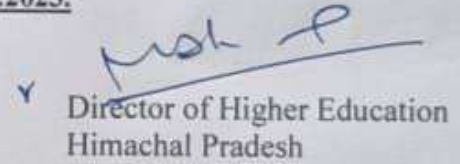 .2023.
Director of Higher Education
Himachal Pradesh